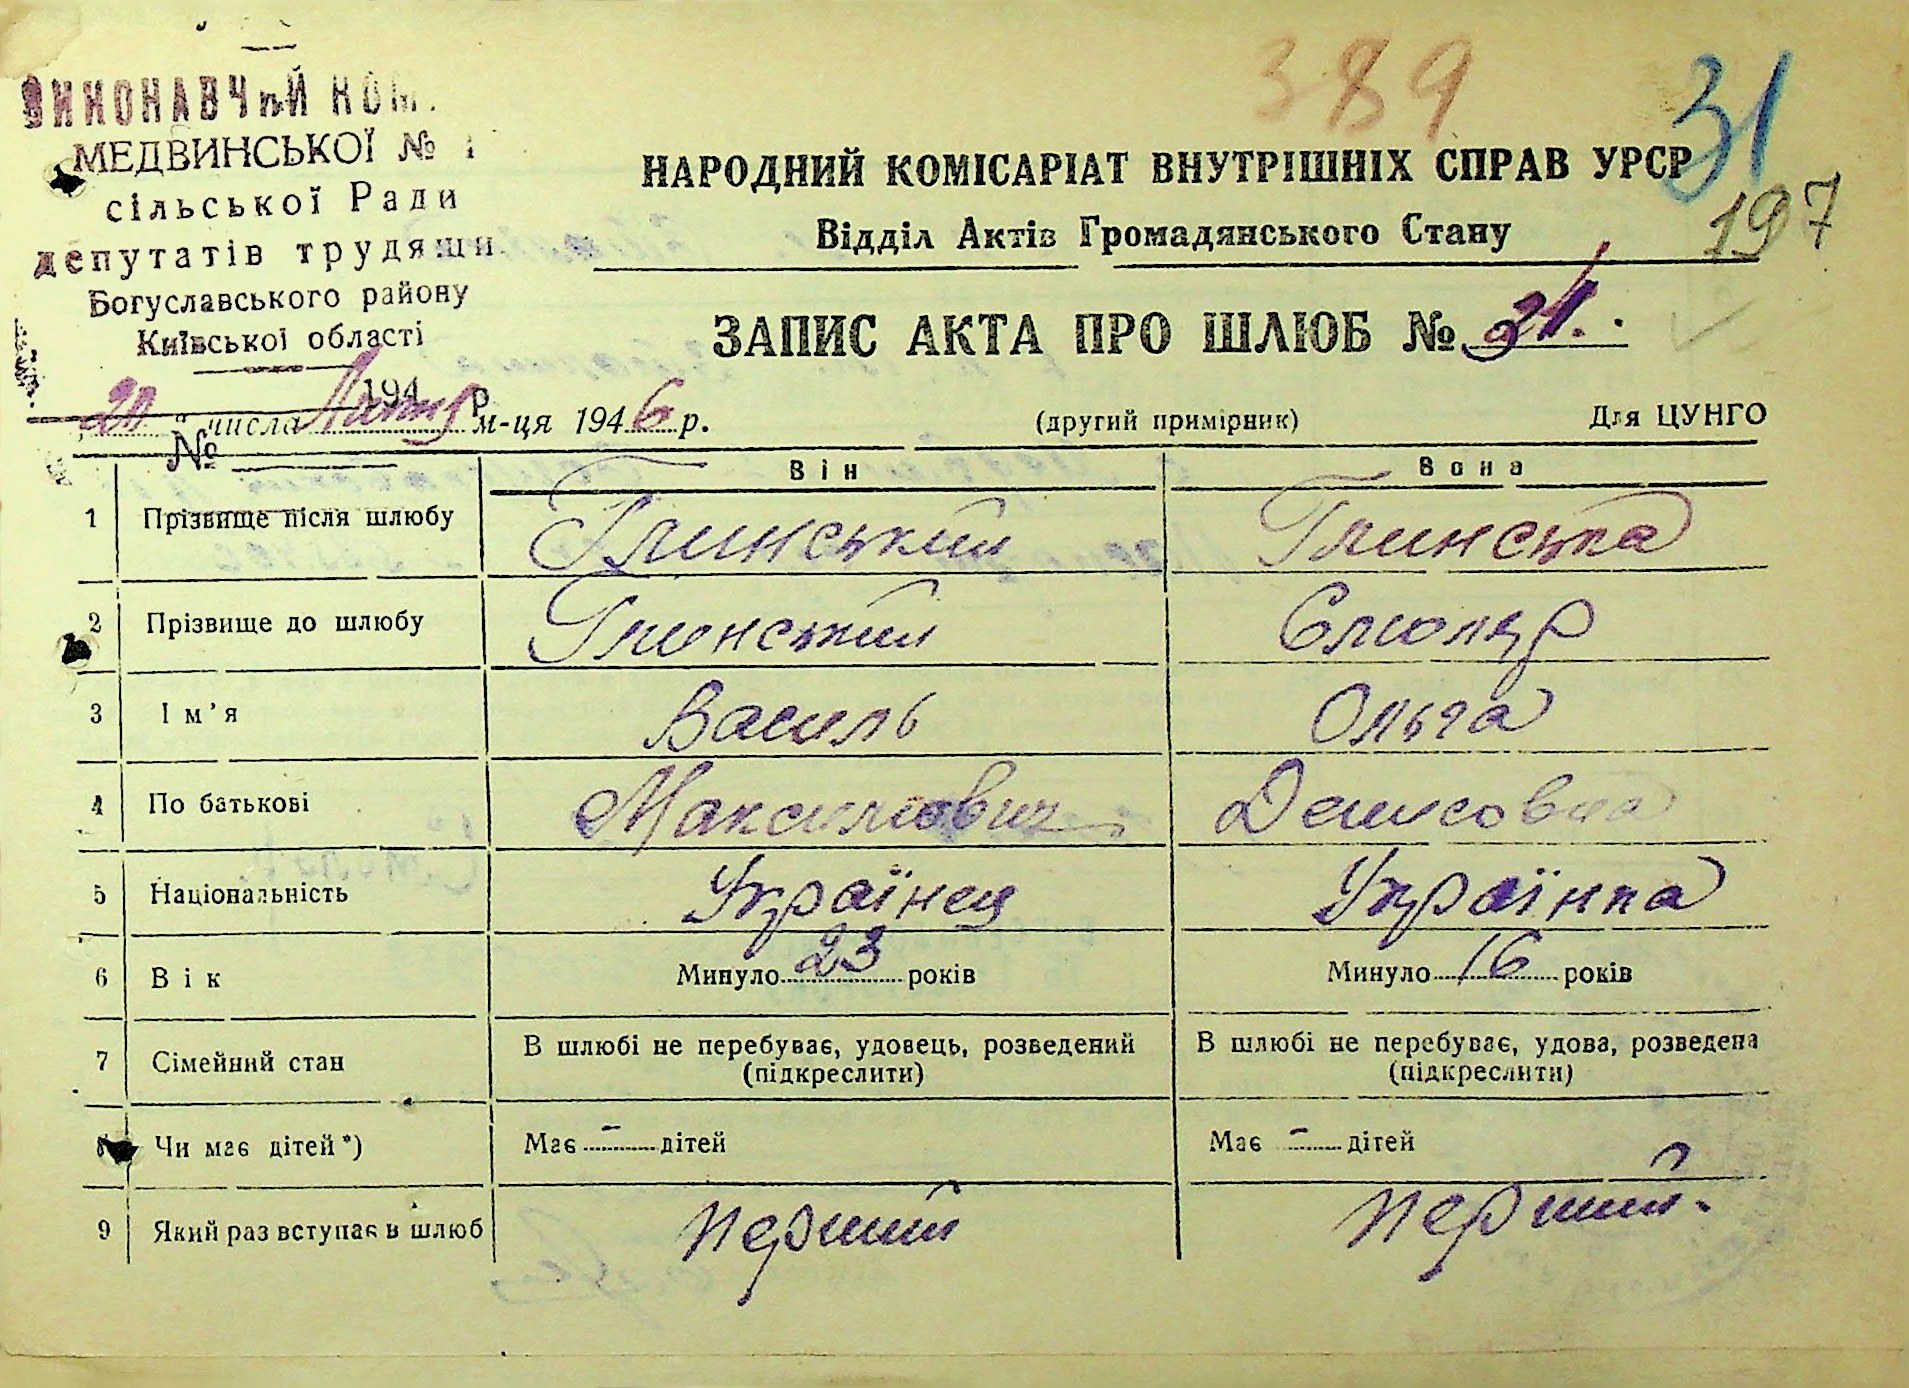 ВИКОНАВЧИЙ КОМ.
МЕДВИНСЬКОЇ № 1
сільської Ради
депутатів трудящи
Богуславського району
Київської області
194 р.
№
389
31
197
НАРОДНИЙ КОМІСАРІАТ ВНУТРІШНІХ СПРАВ УРСР
Відділ Актів Громадянського Стану
ЗАПИС АКТА ПРО ШЛЮБ № 31.
"20" числа Лютя м-ця 1946 р.
(другий примірник)
Для ЦУНГО
Він Вона
1 Прізвище після шлюбу Глинський Глинська
2 Прізвище до шлюбу Глинський
3 Ім'я Василь Ольга
4 По батькові Максимович Денисовна
5 Національність Українец Українка
6 Вік Минуло 23 років Минуло 16 років
7 Сімейний стан В шлюбі не перебуває, удовець, розведений (підкреслити) В шлюбі не перебуває, удова, розведена (підкреслити)
8 Чи має дітей*) Має - дітей Має - дітей
9 Який раз вступає в шлюб перший перший.